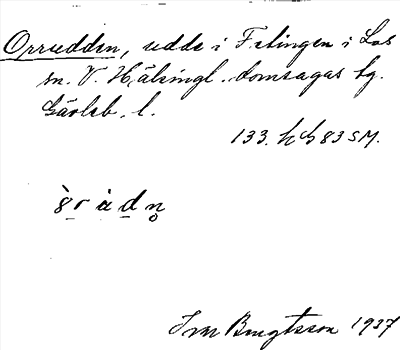 Orrudden, udde i Fetingen i Los
sn. V. Hälsingl. domsagas tg.
Gävleb. l.
133. h G 83 SM.
Bengtsson 1937